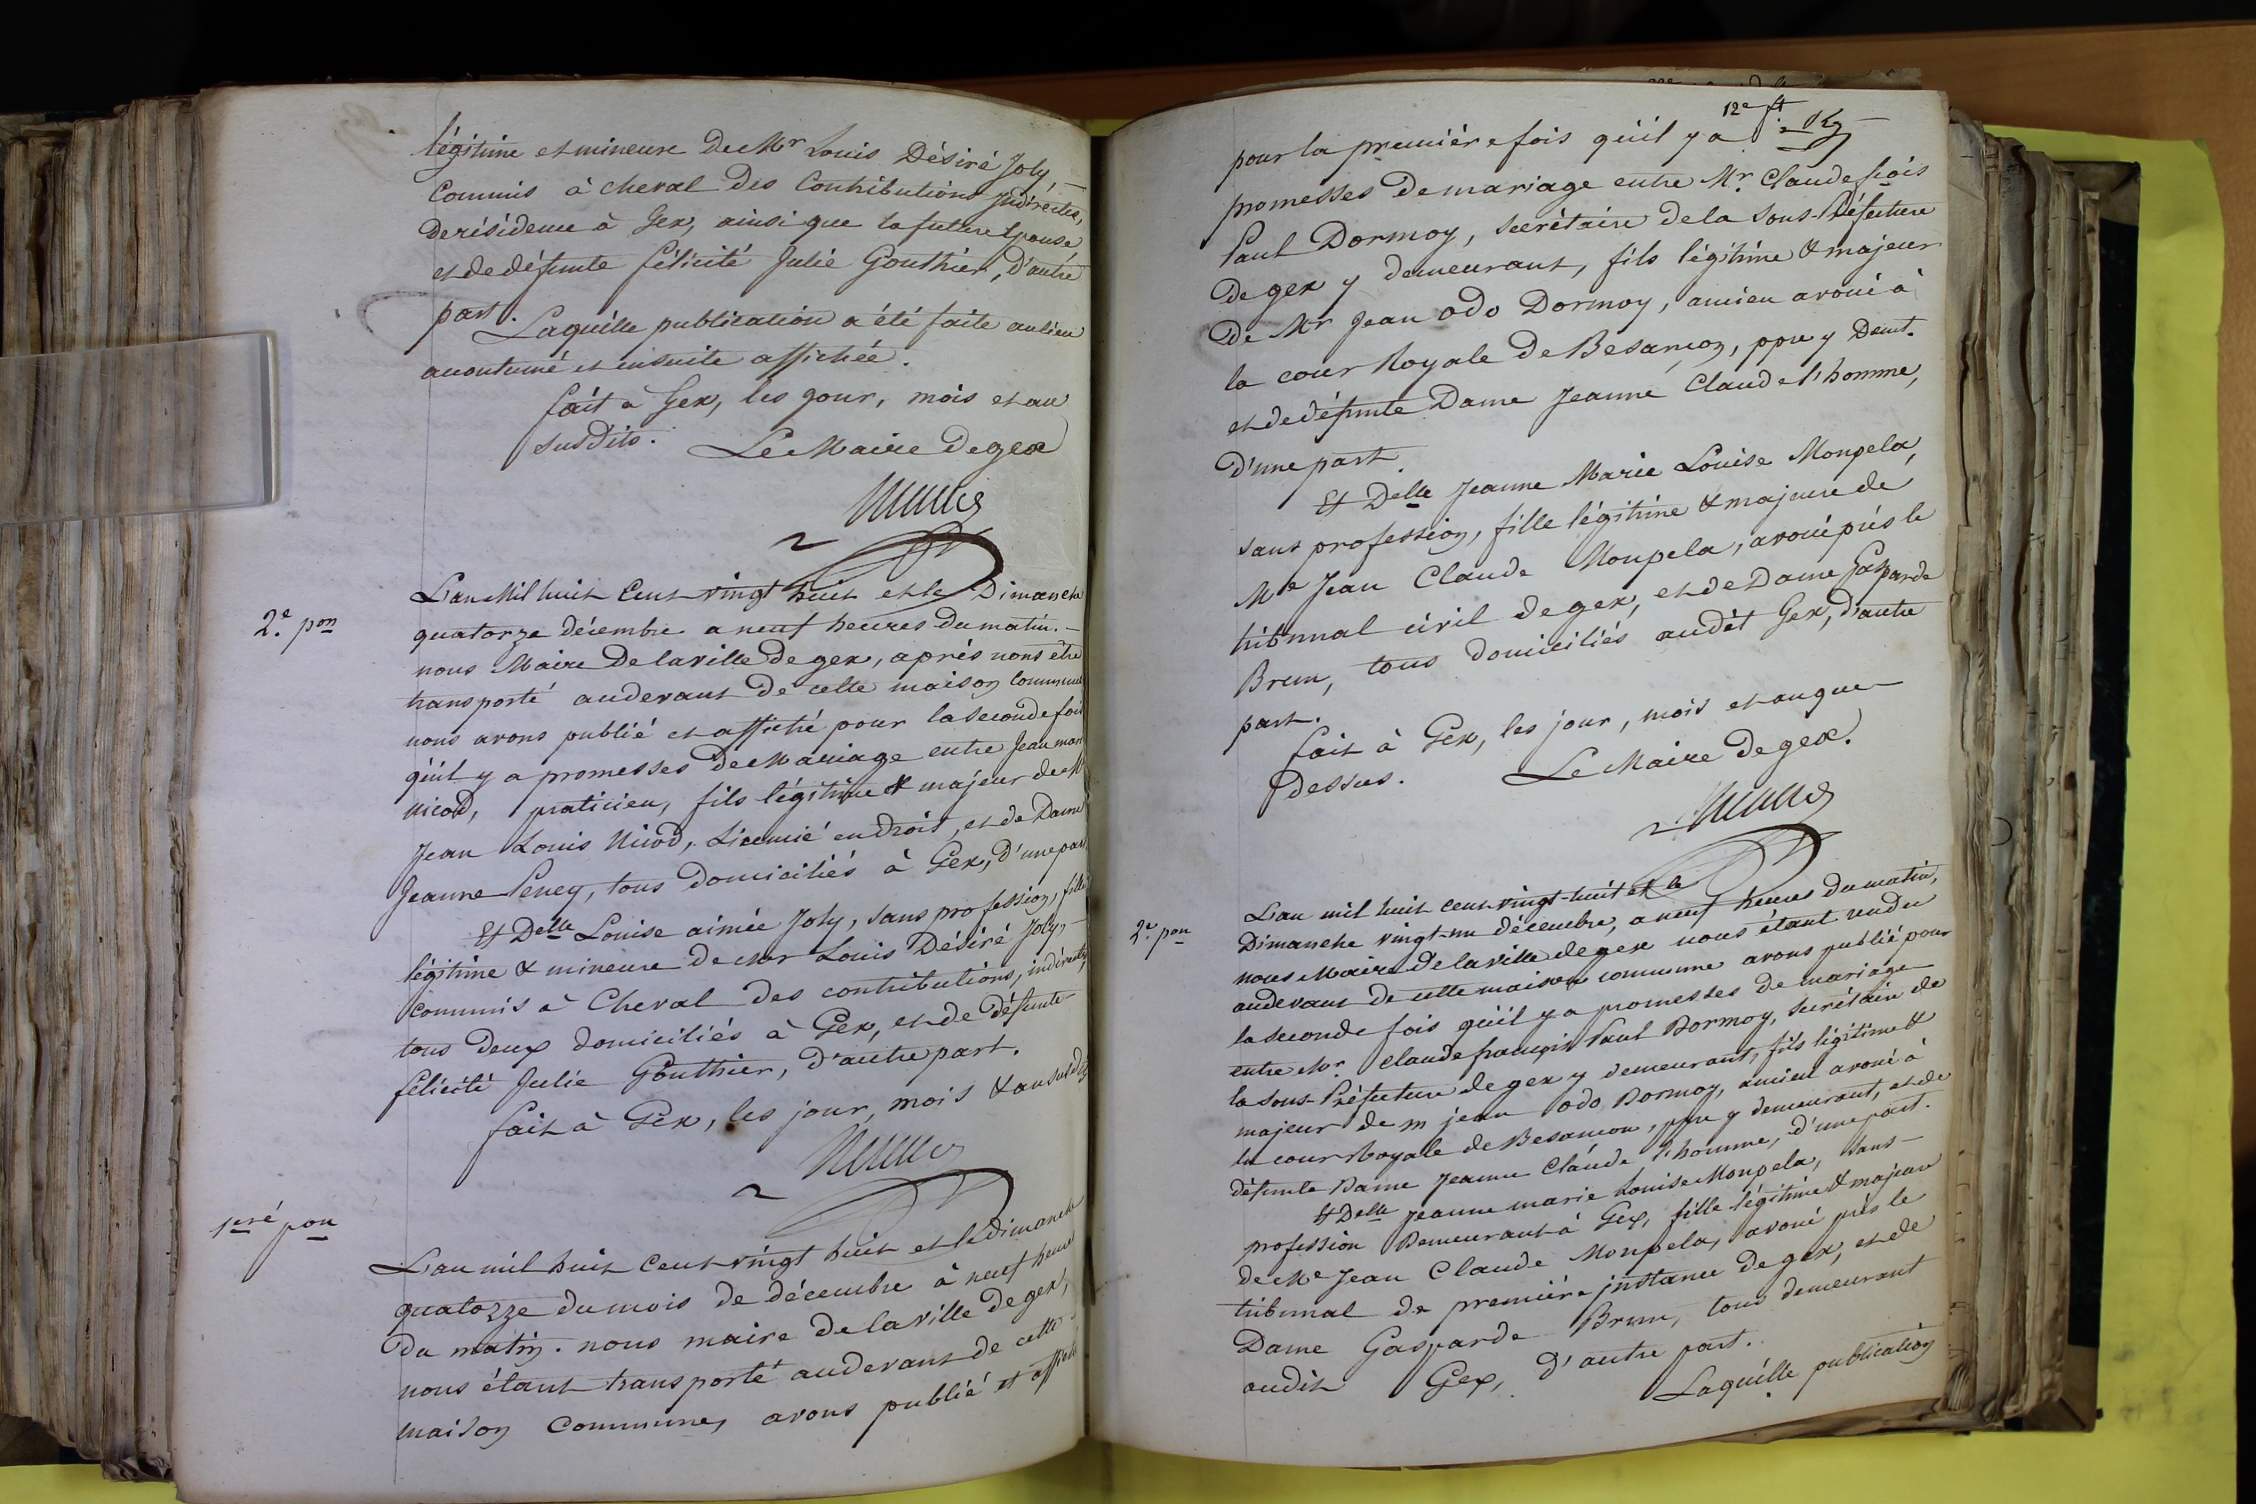 légitime et mineure de Mr Louis Désiré Joly,
Commis à cheval des Contributions Indirectes,
de résidence à Gex, ainsi que la future épouse
et de défunte félicité Julie Gouthier, d'autre
part.
Laquelle publication a été faite au lieu
accoutumé et ensuite affichée.
fait à Gex, les jour, mois et an
susdits. Le Maire de gex
2e. pon
L'an Mil huit Cent vingt huit et le Dimanche
quatorze décembre a neuf heures du matin.
nous Maire de la ville de gex, après nous être
transporté au devant de cette maison Commune
nous avons publié et affiché pour la seconde fois
qu'il y a promesses de Mariage entre Jean marc
nicod, praticien, fils légitime & majeur de Mr
Jean Louis Nicod, Licencié en droit, et de Dame
Jeanne Peney, tous domiciliés à Gex, d'une part
Et Delle Louise aimée Joly, sans profession, fille
légitime & mineure de Mr Louis Désiré Joly,
commis à Cheval des contributions, indirectes,
tous deux domiciliés à Gex, et de défunte
félicité Julie Gouthier, d'autre part.
fait à Gex, les jour, mois & an susdits
1ere pon
L'an mil huit Cent vingt huit et le dimanche
quatorze du mois de décembre à neuf heures
du matin. nous maire de la ville de gex,
nous étant transporté au devant de cette
maison Commune, avons publié et affiché
12e ft.
pour la première fois qu'il y a
promesses de mariage entre Mr. Claude fçois
Paul Dormoy, secrétaire de la Sous-Préfecture
de gex y demeurant, fils légitime & majeur
de Mr Jean odo Dormoy, ancien avoué à
la cour Royale de Besançon, ppre y Demt.
et de défunte Dame Jeanne Claude l'homme,
d'une part.
Et Delle Jeanne Marie Louise Monpela,
sans profession, fille légitime & majeure de
Me Jean Claude Monpela, avoué près le
tribunal civil de gex, et de Dame Gasparde
Brun, tous domiciliés audit Gex, d'autre
part.
fait à Gex, les jour, mois et an que
dessus. Le Maire de gex.
2e. pon
L'an mil huit cent vingt-huit et le
Dimanche vingt-un décembre, a neuf heures du matin,
nous Maire de la ville de gex nous étant rendu
au devant de cette maison commune avons publié pour
la seconde fois qu'il y a promesses de mariage
entre Mr. Claude françois Paul Dormoy, secrétaire de
la sous-Préfecture de gex y demeurant, fils légitime &
majeur de m jean odo Dormoy, ancien avoué à
la cour Royale de Besancon, ppre y demeurant, et de
défunte Dame Jeanne Claude l'homme, d'une part.
Et Delle Jeanne marie Louise Monpela, sans
profession Demeurant à Gex, fille légitime & majeure
de Me Jean Claude Monpela, avoué près le
tribunal de première instance de gex, et de
Dame Gasparde Brun, tous demeurant
audit Gex, d'autre part.
Laquelle publication